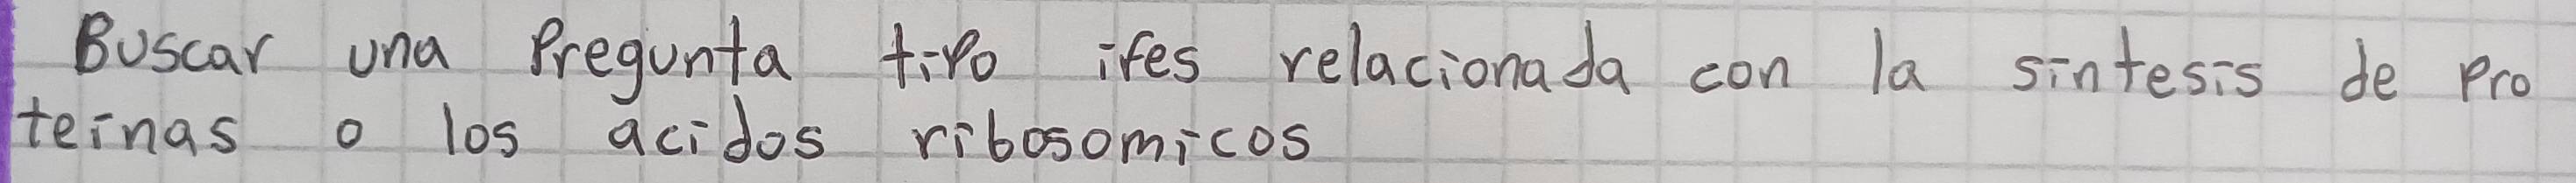 Buscar una Pregunta tipo ifes relacionada con la sintesis de pro
teinas o los acidos ribosomicos